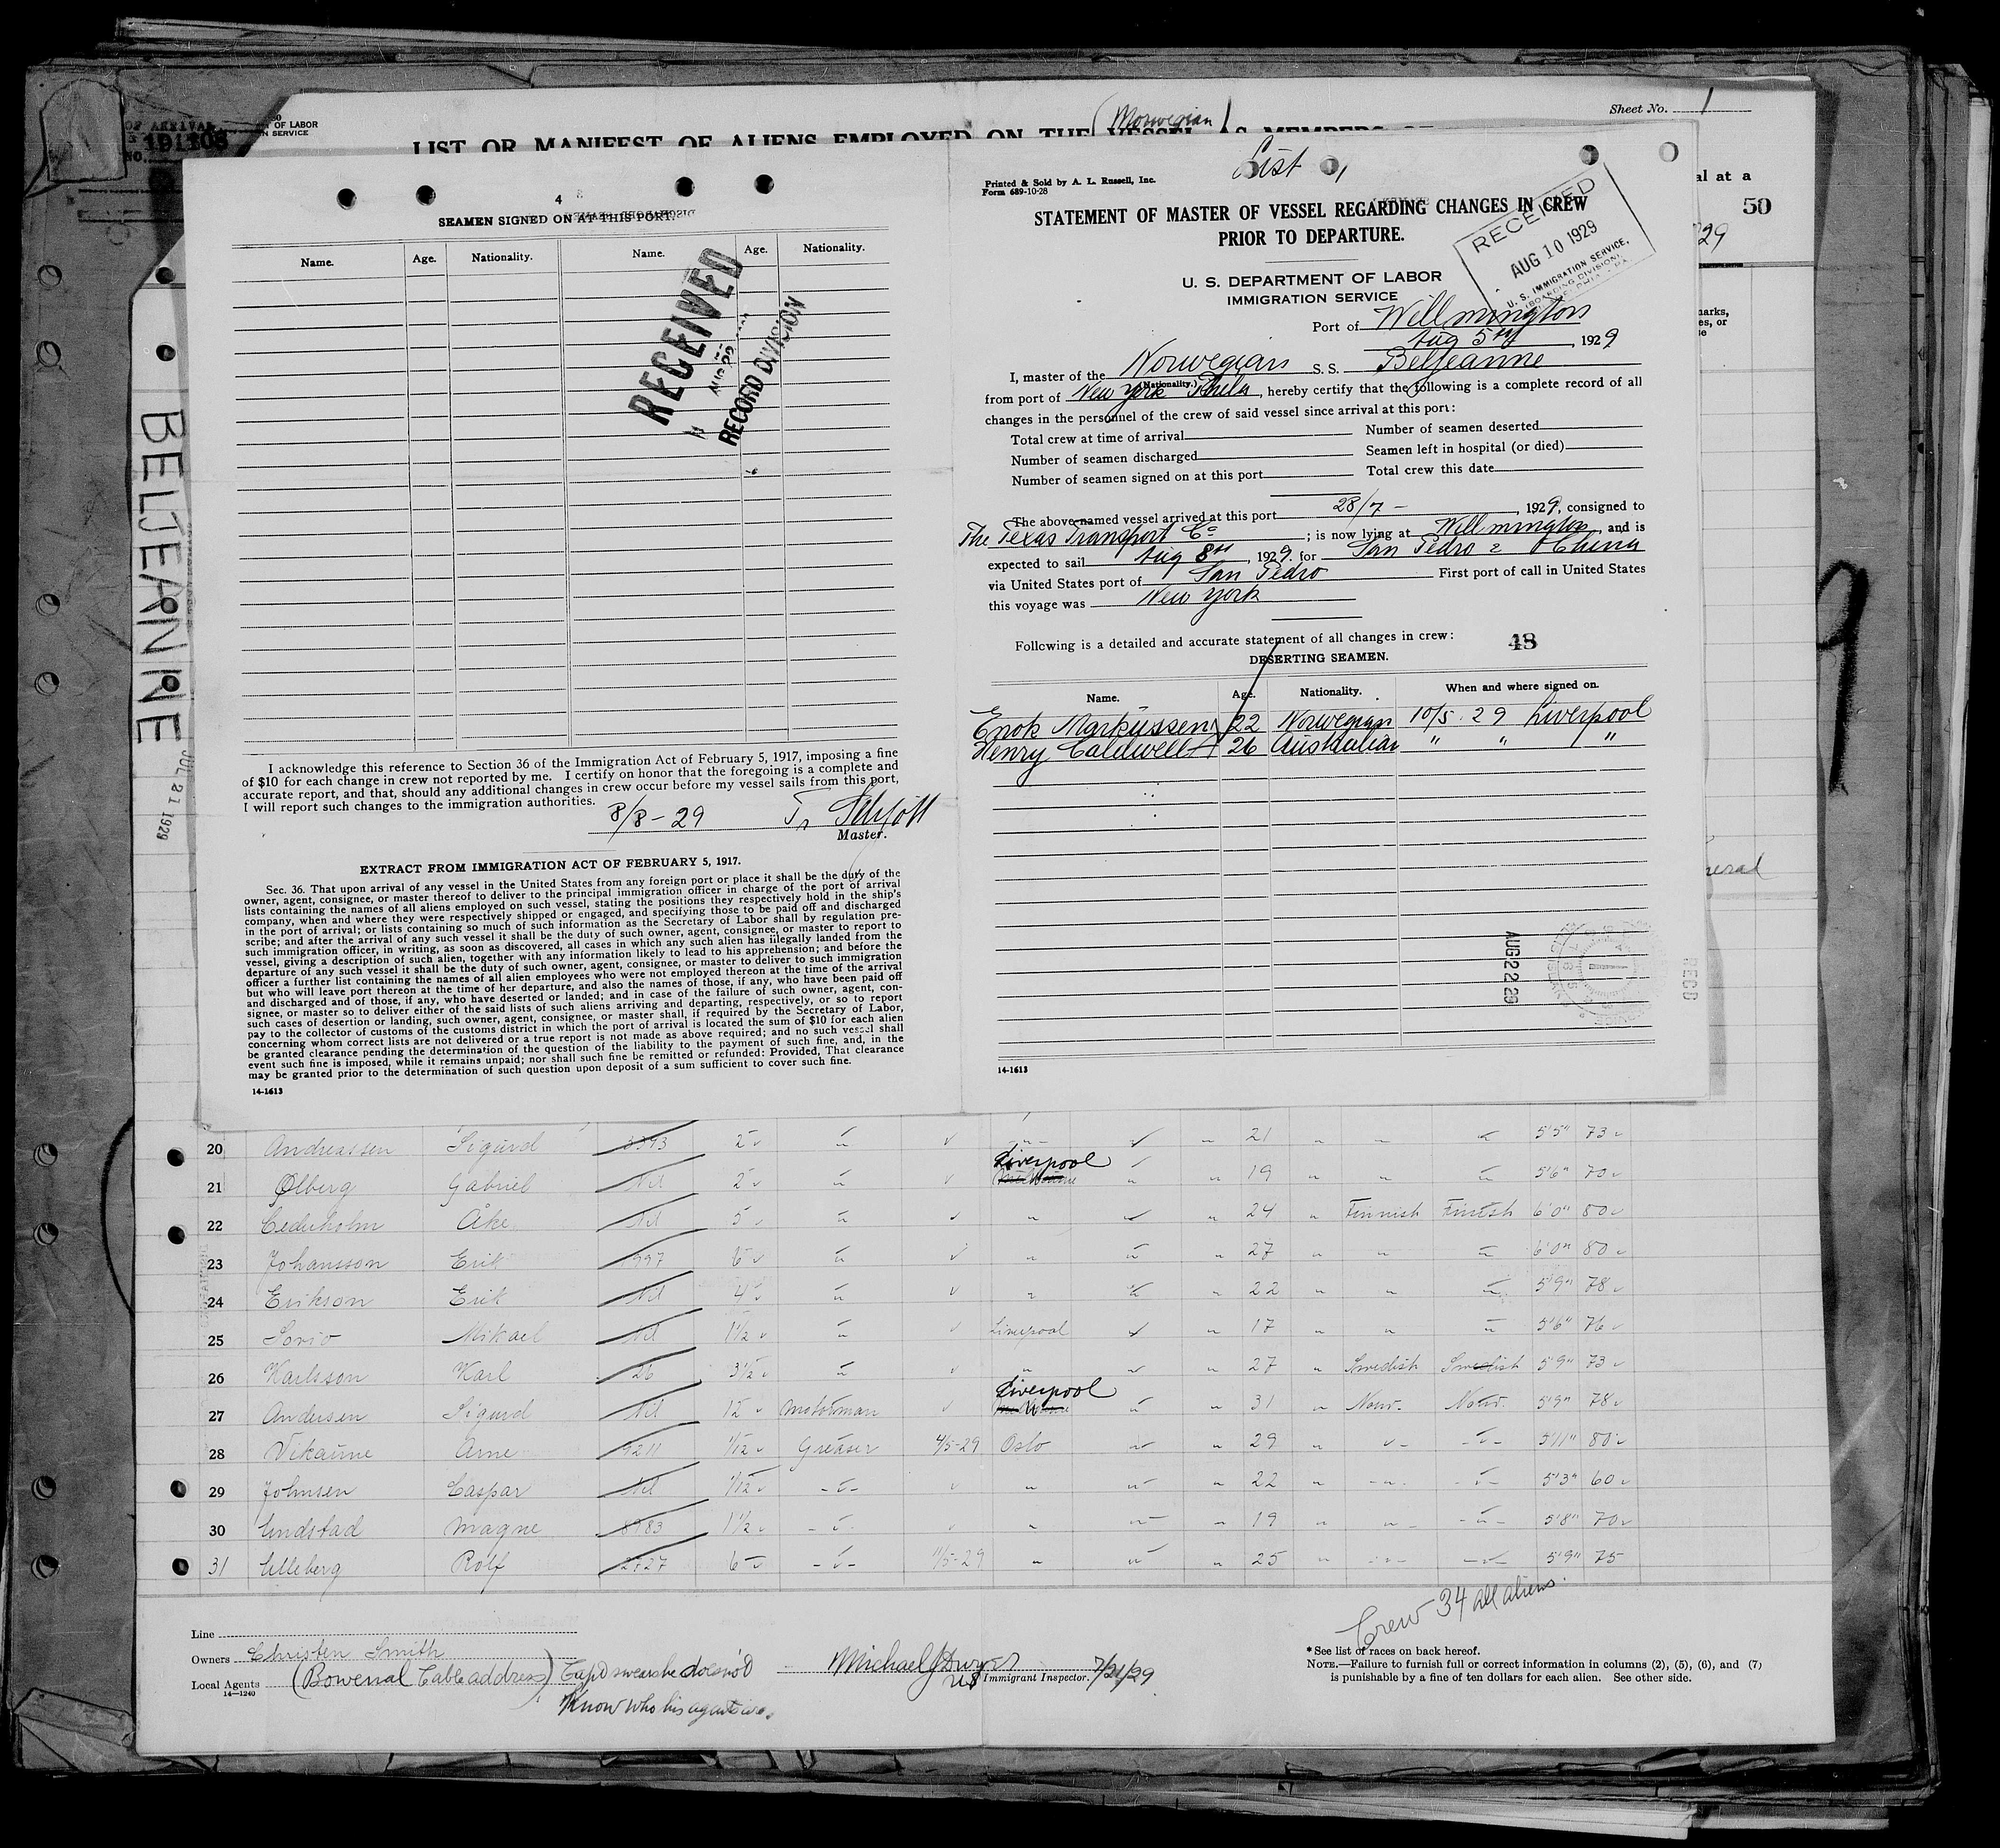 Sheet No. 1
OF ARRIVAL
191105
NO.
T OF LABOR
N SERVICE
(Norwegian)
LIST OR MANIFEST OF ALIENS EMPLOYED ON THE VESSEL AS MEMBERS OF
al at a
50
29
marks,
es, or
se
BELJEANNE
JUL 21 1929
4
SEAMEN SIGNED ON AT THIS PORT.
Name. Age. Nationality. Name. Age. Nationality.
RECEIVED
RECORD DIVISION
I acknowledge this reference to Section 36 of the Immigration Act of February 5, 1917, imposing a fine
of $10 for each change in crew not reported by me. I certify on honor that the foregoing is a complete and
accurate report, and that, should any additional changes in crew occur before my vessel sails from this port,
I will report such changes to the immigration authorities.
8/8-29
Master.
EXTRACT FROM IMMIGRATION ACT OF FEBRUARY 5, 1917.
Sec. 36. That upon arrival of any vessel in the United States from any foreign port or place it shall be the duty of the
owner, agent, consignee, or master thereof to deliver to the principal immigration officer in charge of the port of arrival
lists containing the names of all aliens employed on such vessel, stating the positions they respectively hold in the ship's
company, when and where they were respectively shipped or engaged, and specifying those to be paid off and discharged
in the port of arrival; or lists containing so much of such information as the Secretary of Labor shall by regulation pre-
scribe; and after the arrival of any such vessel it shall be the duty of such owner, agent, consignee, or master to report to
such immigration officer, in writing, as soon as discovered, all cases in which any such alien has illegally landed from the
vessel, giving a description of such alien, together with any information likely to lead to his apprehension; and before the
departure of any such vessel it shall be the duty of such owner, agent, consignee, or master to deliver to such immigration
officer a further list containing the names of all alien employees who were not employed thereon at the time of the arrival
but who will leave port thereon at the time of her departure, and also the names of those, if any, who have been paid off
and discharged and of those, if any, who have deserted or landed; and in case of the failure of such owner, agent, con-
signee, or master so to deliver either of the said lists of such aliens arriving and departing, respectively, or so to report
such cases of desertion or landing, such owner, agent, consignee, or master shall, if required by the Secretary of Labor,
pay to the collector of customs of the customs district in which the port of arrival is located the sum of $10 for each alien
concerning whom correct lists are not delivered or a true report is not made as above required; and no such vessel shall
be granted clearance pending the determination of the question of the liability to the payment of such fine, and, in the
event such fine is imposed, while it remains unpaid; nor shall such fine be remitted or refunded: Provided, That clearance
may be granted prior to the determination of such question upon deposit of a sum sufficient to cover such fine.
14-1613
Printed & Sold by A. L. Russell, Inc.
Form 689-10-28
List 1
STATEMENT OF MASTER OF VESSEL REGARDING CHANGES IN CREW
PRIOR TO DEPARTURE.
RECEIVED
AUG 10 1929
U. S. IMMIGRATION SERVICE,
(BOARDING DIVISION)
U. S. DEPARTMENT OF LABOR
IMMIGRATION SERVICE
Port of Willmington
Aug 5th, 1929
I, master of the Norwegian S. S. Beljeanne
(Nationality.)
from port of New York Phila, hereby certify that the following is a complete record of all
changes in the personnel of the crew of said vessel since arrival at this port:
Total crew at time of arrival Number of seamen deserted
Number of seamen discharged Seamen left in hospital (or died)
Number of seamen signed on at this port Total crew this date
The above-named vessel arrived at this port 28/7 - , 1929, consigned to
The Texas Transport Co ; is now lying at Willmington, and is
expected to sail Aug 8th, 1929 for San Pedro & China
via United States port of San Pedro First port of call in United States
this voyage was New York
Following is a detailed and accurate statement of all changes in crew: 48
DESERTING SEAMEN.
Name. Age. Nationality. When and where signed on.
Enok Markussen 22 Norwegian 10/5.29 Liverpool
Henry Caldwell 26 Australian " " "
AUG 22 29
RECD
14-1613
20 Andreassen Sigurd 3393 2 " " 21 " " " 5'5" 73
21 Ølberg Gabriel Nil 2 " Liverpool " " 19 " " " 5'6" 70
22 Cederholm Åke Nil 5 " " " 24 " Finnish Finish 6'0" 80
23 Johansson Erik 997 6 " " " " 27 " " " 6'0" 80
24 Erikson Erik Nil 4 " " " " 22 " " " 5'9" 78
25 Sorio Mikael Nil 1 1/2 " Liverpool " 17 " " " 5'6" 76
26 Karlsson Karl 26 3 1/2 " " " " 27 " Swedish Swedish 5'9" 73
27 Andersen Sigurd Nil 12 Motorman Liverpool " " 31 " Norw. Norw. 5'9" 78
28 Vikaune Arne 9211 1/12 Greaser 4/5-29 Oslo " " 29 " " " 5'11" 80
29 Johnsen Caspar Nil 1/12 " " " " 22 " " " 5'3" 60
30 Lindstad Magne 8983 1 1/2 " " " " 19 " " " 5'8" 70
31 Ulleberg Rolf 2727 6 " 11/5-29 " " " 25 " " " 5'9" 75
Crew 34 all aliens.
Line
Owners Christen Smith
Local Agents (Bowenal Cable address) Capt swears he does not
know who his agents is.
14-1240
Michael J Dwyer
US Immigrant Inspector. 7/21/29
* See list of races on back hereof.
NOTE.—Failure to furnish full or correct information in columns (2), (5), (6), and (7)
is punishable by a fine of ten dollars for each alien. See other side.